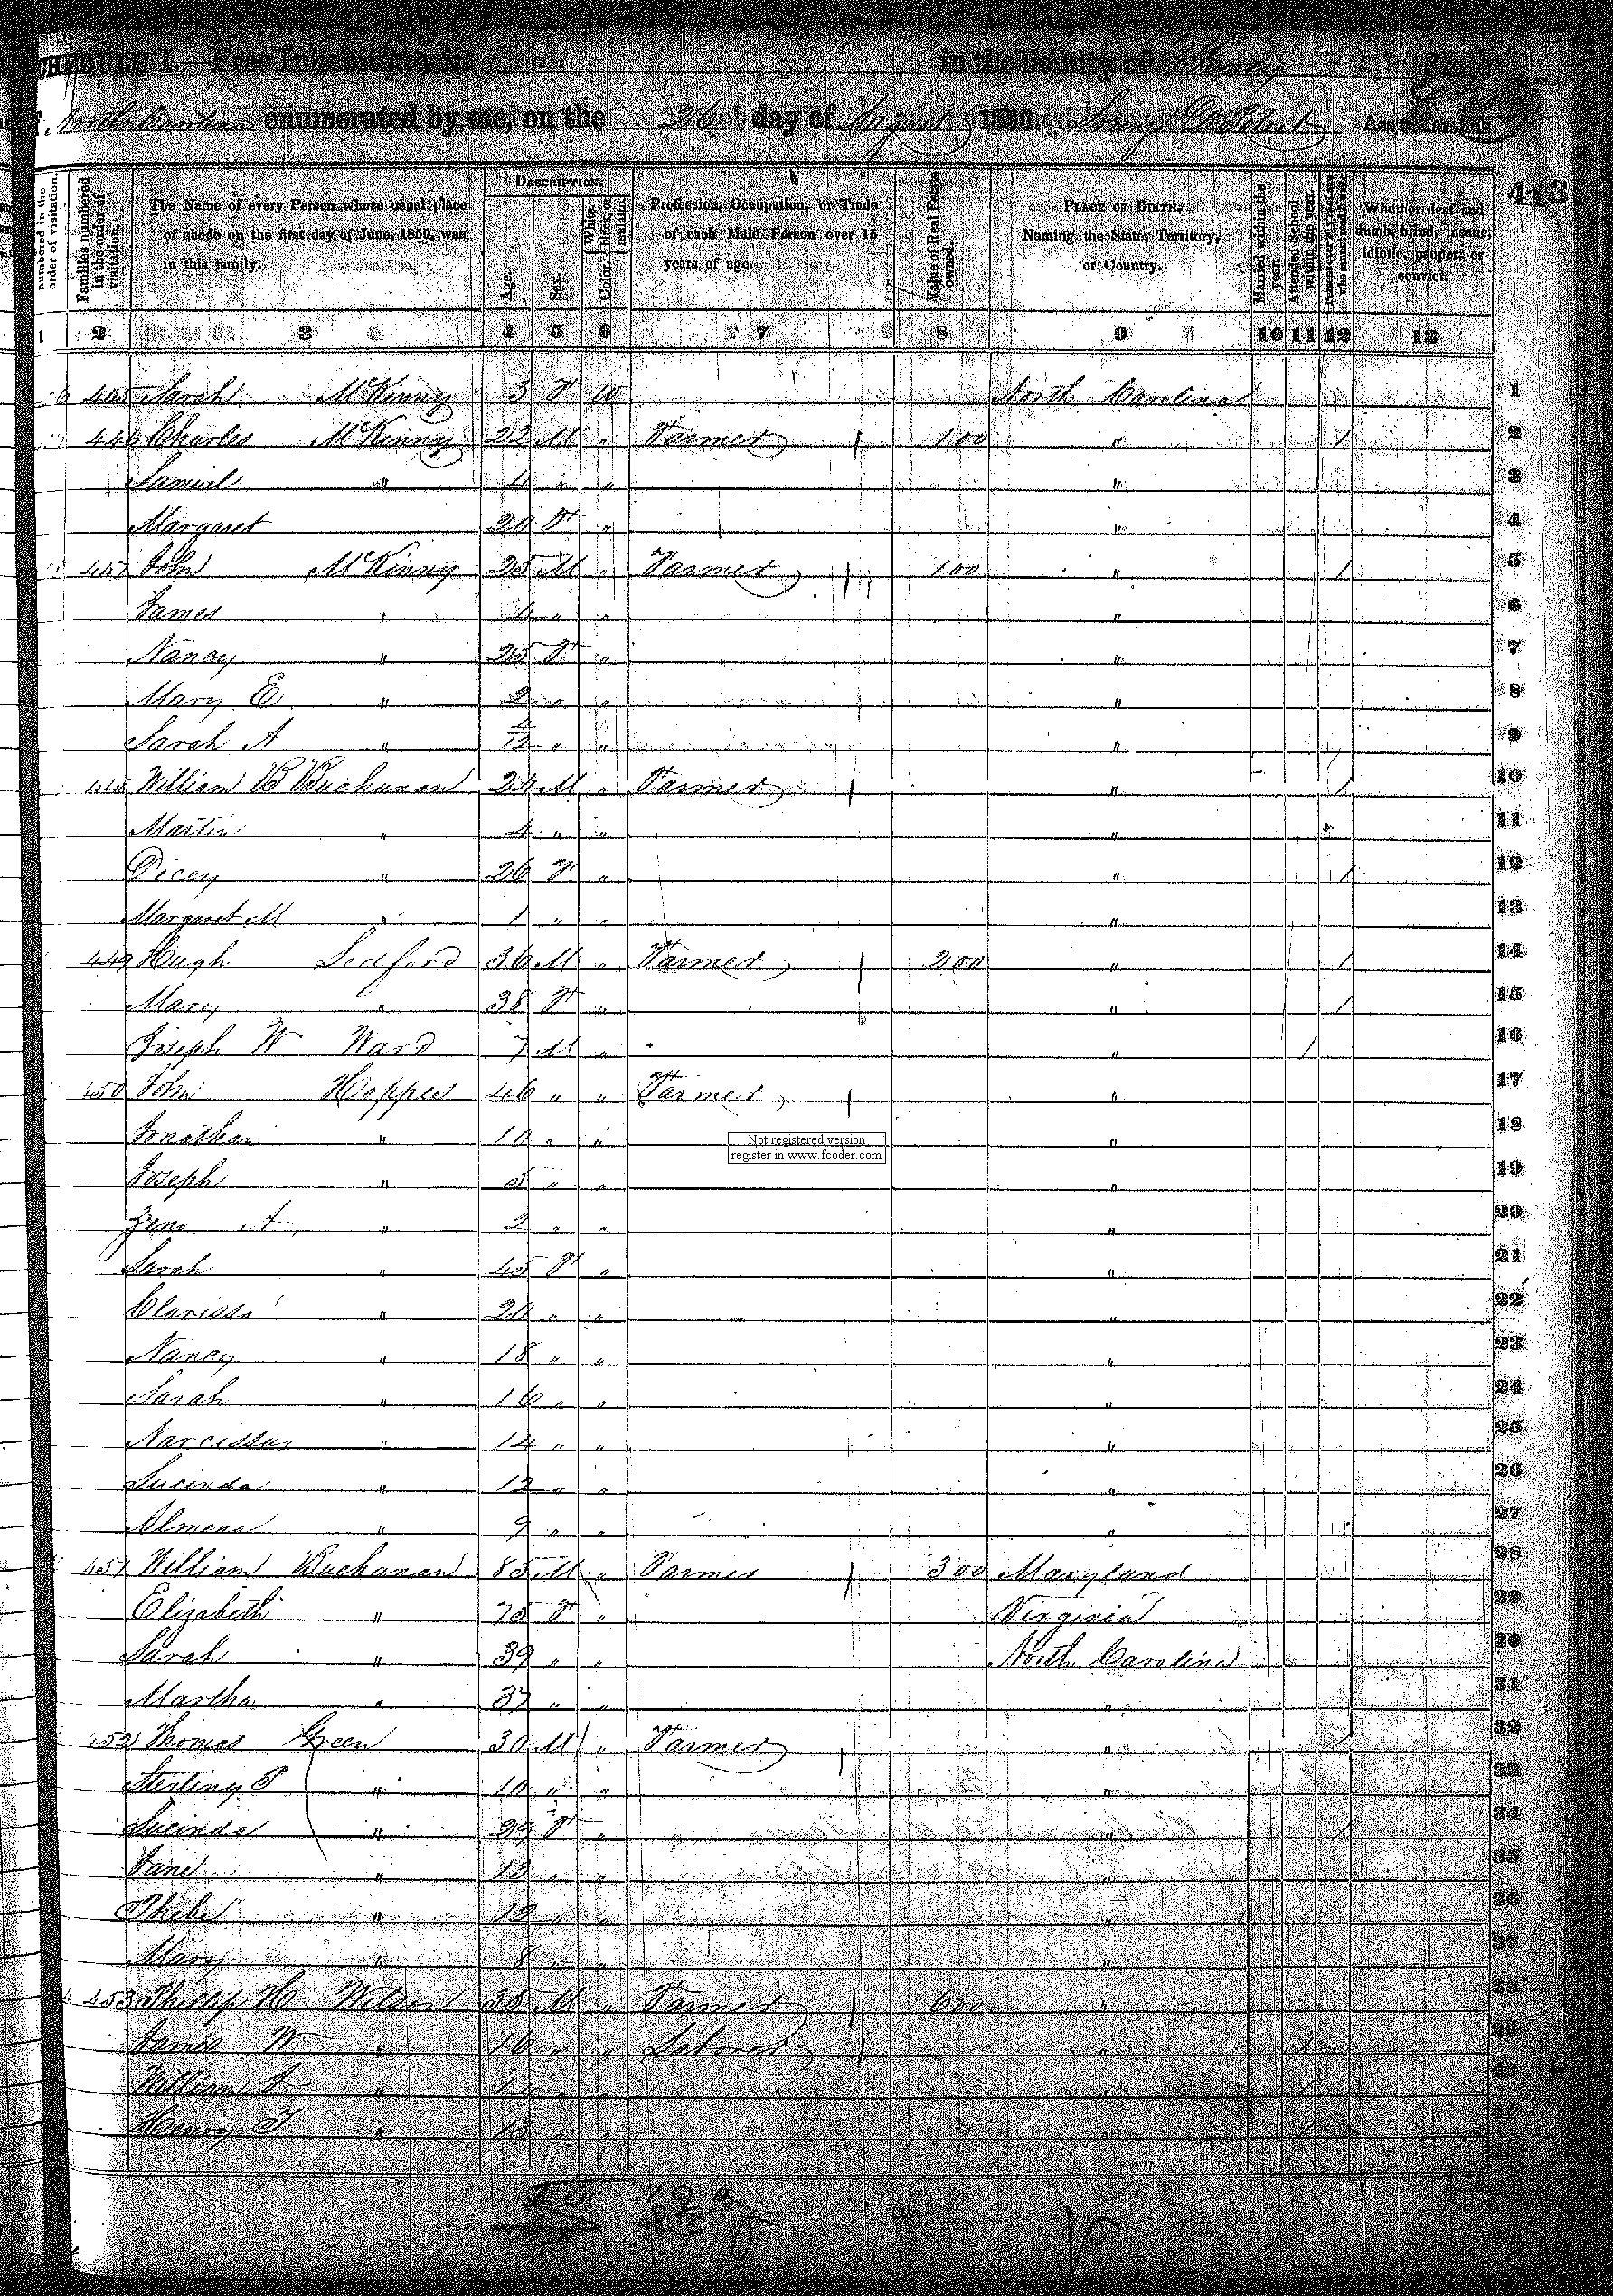 SCHEDULE I.—Free Inhabitants in in the County of
North Carolina enumerated by me, on the 26 day of August 1850. Ass't Marshal.
413
numbered in the order of visitation.
Families numbered in the order of visitation.
The Name of every Person whose usual place of abode on the first day of June, 1850, was in this family.
Description.
Age.
Sex.
Color. White, black, or mulatto.
Profession, Occupation, or Trade of each Male Person over 15 years of age.
Value of Real Estate owned.
Place of Birth. Naming the State, Territory, or Country.
Married within the year.
Attended School within the year.
Whether deaf and dumb, blind, insane, idiotic, pauper, or convict.
1 2 3 4 5 6 7 8 9 10 11 12 12
445 Sarah McKinney 3 F W North Carolina 1
446 Charles McKinney 22 M " Farmer 100 " / 2
Samuel " 4 " " " 3
Margaret 20 F " " 4
447 John McKinney 25 M " Farmer 100 " / 5
James " 4 " " " 6
Nancy " 25 F " " 7
Mary E " 2 " " " 8
Sarah A " 4/12 " " " 9
448 William B Buchanan 24 M " Farmer " / 10
Martin " 4 " " " 11
Dicey " 26 F " " / 12
Margaret M " 1 " " " 13
449 Hugh Ledford 36 M " Farmer 200 " / 14
Mary " 38 F " " / 15
Joseph W Ward 7 M " " / 16
450 John Hoppes 46 " " Farmer " 17
Jonathan " 10 " " " 18
Not registered version
register in www.fcoder.com
Joseph " 5 " " " 19
Zeno A " 2 " " " 20
Sarah " 45 F " " 21
Clarissa " 20 " " " 22
Nancy " 18 " " " 23
Sarah " 16 " " " 24
Narcissus " 14 " " " 25
Lucinda " 12 " " " 26
Almena " 9 " " " 27
451 William Buchanan 85 M " Farmer 300 Maryland 28
Elizabeth " 75 F " Virginia 29
Sarah " 39 " " North Carolina 30
Martha " 37 " " " 31
452 Thomas Green 30 M " Farmer " / 32
Sterling P " 10 " " " 33
Lucinda " 39 F " " / 34
Jane " 13 " " " 35
Phebe " 12 " " " 36
Mary " 8 " " " 37
453 Phillip H Wilson 35 M " Farmer 600 "
James W " 16 " " Laborer "
William " " " "
Henry T " " " "